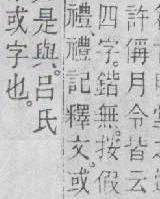 許偁月令皆云
四字。鍇無。按假
禮、禮記釋文。或
是與。吕氏
或字也。